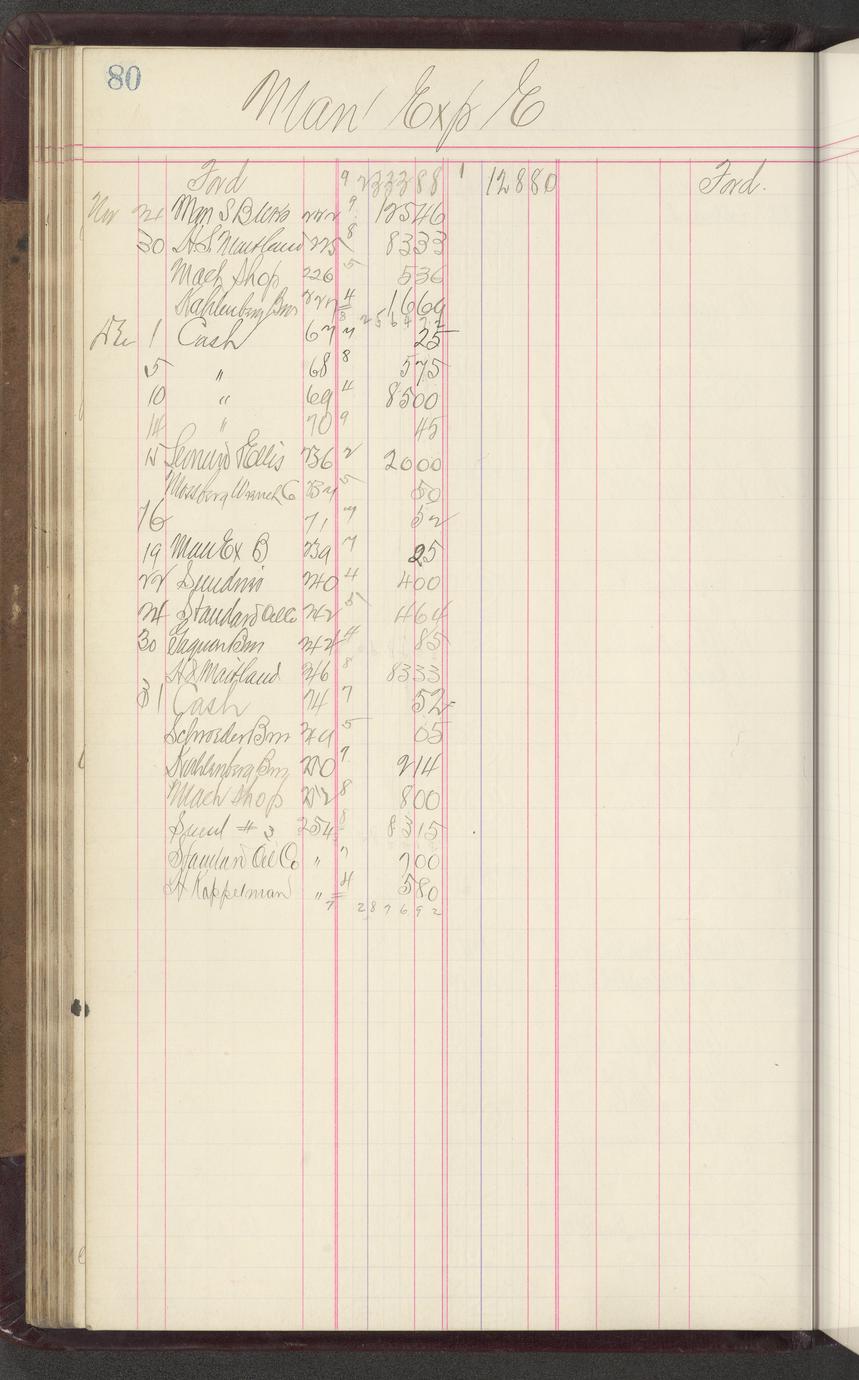 80
Man' Exp E
Ford 9 233388 1 12880 Ford.
Nov 24 Man S B 222 9 12546
30 H.S. Maitland 225 8 8333
Mach Shop 226 5 536
Kahlenberg Bros 227 4 1669
8 256472
Dec 1 Cash 67 7 25
5 " 68 8 575
10 " 69 4 8500
14 " 70 9 45
15 Ellis 236 2 2000
Mossberg Wrench C 237 5 50
16 71 7 52
19 Man Ex B 239 7 25
22 240 4 400
24 Standard Oil Co 242 5 464
30 Bros 244 4 85
H S Maitland 246 8 8333
31 Cash 74 7 52
Schroeder Bros 249 5 05
Kahlenberg Bros 250 7 214
Mach Shop 252 8 800
# 3 254 8 8315
Standard Oil Co " 7 700
H Kappelman " 4 580
7 287692